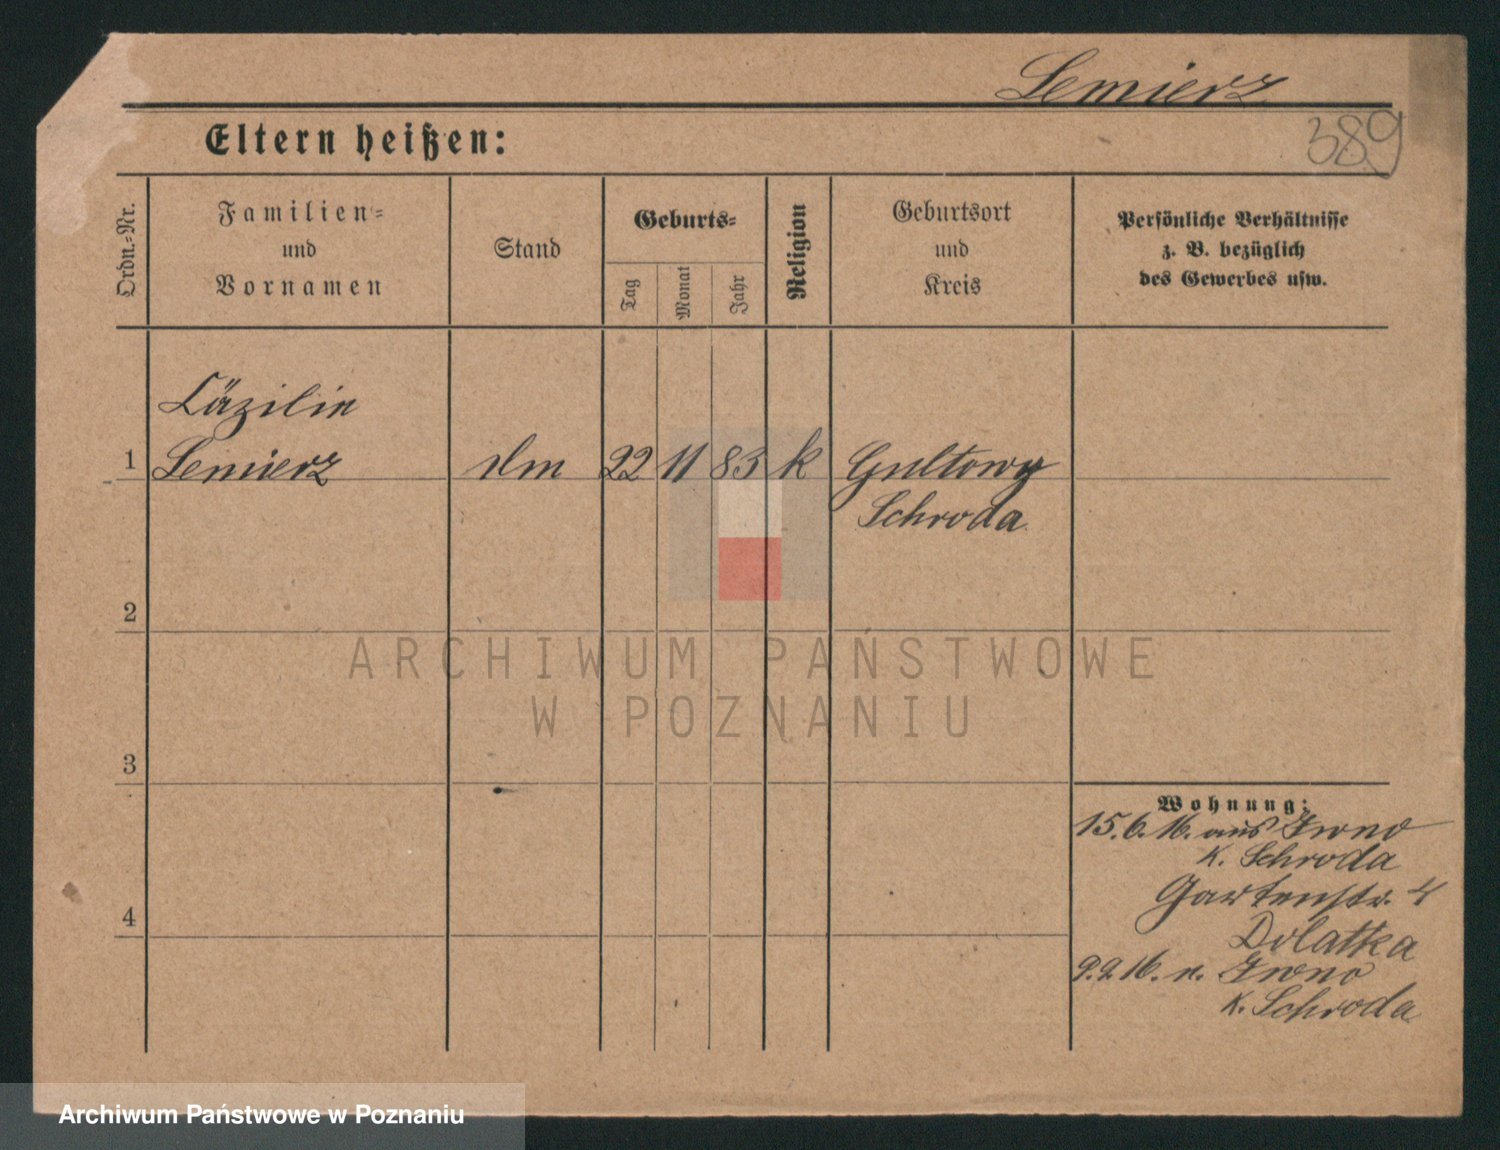 Semierz
389
Eltern heißen:
Ordn.=Nr.
Familien=
und
Vornamen
Stand
Geburts=
Tag
Monat
Jahr
Religion
Geburtsort
und
Kreis
Persönliche Verhältnisse
z. B. bezüglich
des Gewerbes usw.
Cäzilie
1 Semierz 22 11 83 k Gultowy
Schroda
2
ARCHIWUM PAŃSTWOWE
W POZNANIU
3
Wohnung:
15.6.16. aus Iwno
K. Schroda
4 Gartenstr. 4
Dolatka
9.9.16. n. Iwno
K. Schroda
Archiwum Państwowe w Poznaniu